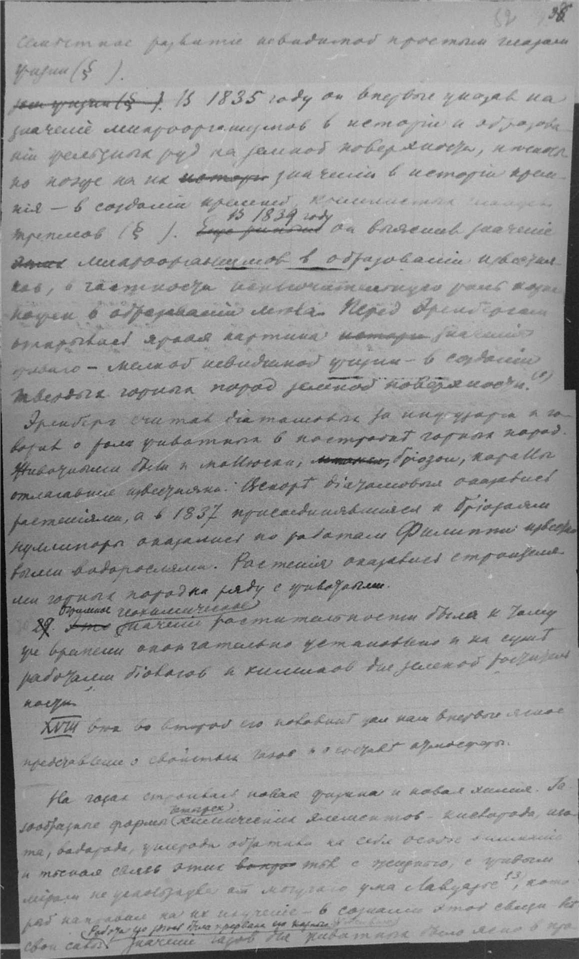 98
семѣстное развитіе невидимой простымъ глазомъ
жизни (§ ).
В 1835 году он впервые указал на
значеніе микроорганизмов в исторіи и образова-
ніи желѣзных руд на земной поверхности, и
но позже на их истор значеніе в исторіи крем-
нія – в созданіи кремней, кремнистых
трепелов (§ ). В 1839 году он выяснил значеніе
этих микроорганизмов в образованіи известня-
ков, в частности исключительную роль
в образованіи мѣла. Перед Эренбергом
открывалась яркая картина истори значенія
живого – мелкой невидимой жизни – в созданіи
твердых горных пород земной поверхности.
Эренберг считал діатомовых за инфузорій и го-
ворил о роли животных в постройкѣ горных пород.
Животными были и моллюски, бріозои, кораллы
отлагавшіе известняки. Вскорѣ діатомовыя оказались
растеніями, а в 1837 присоединявшіяся к бріозоям
нуллипоры оказались по работам Филиппи известко-
выми водорослями. Растенія оказались строителя-
ми горных пород на ряду с животными.
29. Это Огромное геохимическое значеніе растительности было к тому
же времени окончательно установлено и на сушѣ
работами біологов и химиков для зеленой раститель-
ности.
XVIII вѣк во второй его половинѣ дал нам впервые ясное
представленіе о свойствах газов и о составѣ атмосферы.
На газах строилась новая физика и новая химія. Га-
зообразные формы химических элементов – кислорода, азо-
та, водорода, углерода обратили на себя особое вниманіе
и тѣсная связь этих вопро тѣл с жизнью, с живым
міром не ускользнула от могучаго ума Лавуазье 13, кото-
рый направил на их изученіе – в сознаніи этой связи –
свои силы. Работа его была прервана
значеніе газов для животных было ясно